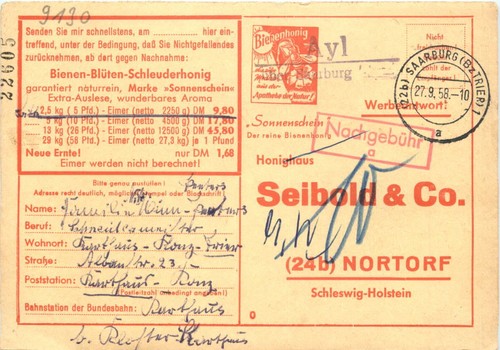 9130
22605
Senden Sie mir schnellstens, am hier ein-
treffend, unter der Bedingung, daß Sie Nichtgefallendes
zurücknehmen, ab dort gegen Nachnahme:
Bienen-Blüten-Schleuderhonig
garantiert naturrein, Marke »Sonnenschein«
Extra-Auslese, wunderbares Aroma
2,5 kg (5 Pfd.) - Eimer (netto 2250 g) DM 9,80
5 kg (10 Pfd.) - Eimer (netto 4500 g) DM 17,80
13 kg (26 Pfd.) - Eimer (netto 12500 g) DM 45,80
29 kg (58 Pfd.) - Eimer (netto 27,3 kg) je 1 Pfund
Neue Ernte! nur DM 1,68
Eimer werden nicht berechnet!
Bitte genau ausfüllen!
Adresse recht deutlich, möglichst Stempel oder Blockschrift!
Name: Familie
Beruf: Schneidermeister
Wohnort: Karthaus-Konz-Trier
Straße: 23
Poststation: Karthaus-Konz
(Postleitzahl unbedingt angeben!)
Bahnstation der Bundesbahn: Karthaus
b. Kloster Karthaus
Bienenhonig
die Apotheke der Natur!
Ayl
über Saarburg
Nicht
freimachen
Werbeantwort!
(22b) SAARBURG (BZ. TRIER) 1
27.9.58.-10
a
»Sonnenschein«
Der reine Bienenhonig
Nachgebühr
a
Honighaus
Seibold & Co.
(24b) NORTORF
Schleswig-Holstein
0